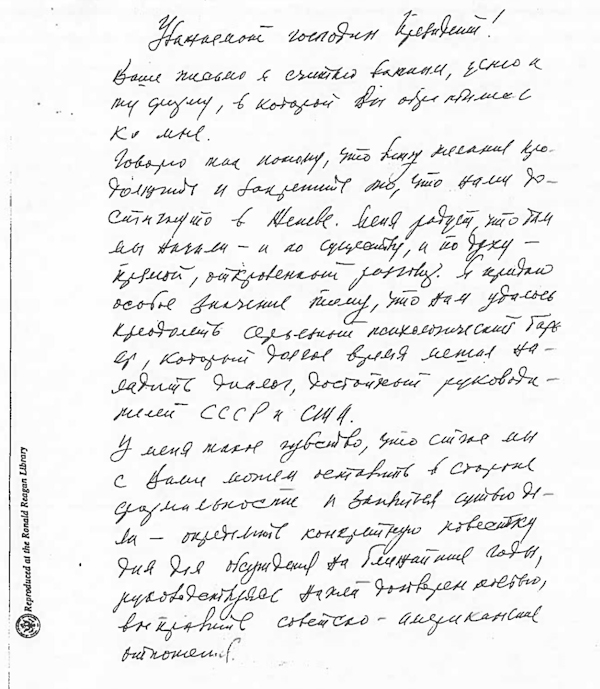 Уважаемый господин Президент!
Ваше письмо я считаю важным, ценю и
ту форму, в которой Вы обратились
ко мне.
Говорю так потому, что вижу желание про-
должить и закрепить то, что нами до-
стигнуто в Женеве. Меня радует, что там
мы начали – и по существу, и по духу –
прямой, откровенный разговор. Я придаю
особое значение тому, что нам удалось
преодолеть серьезный психологический барь-
ер, который долгое время мешал на-
ладить диалог, достойный руководи-
телей СССР и США.
У меня такое чувство, что сейчас мы
с Вами можем оставить в стороне
формальности и заняться сутью де-
ла – определить конкретную повестку
дня для обсуждения на ближайшие годы,
руководствуясь нашей договоренностью,
выправить советско-американские
отношения.
Reproduced at the Ronald Reagan Library